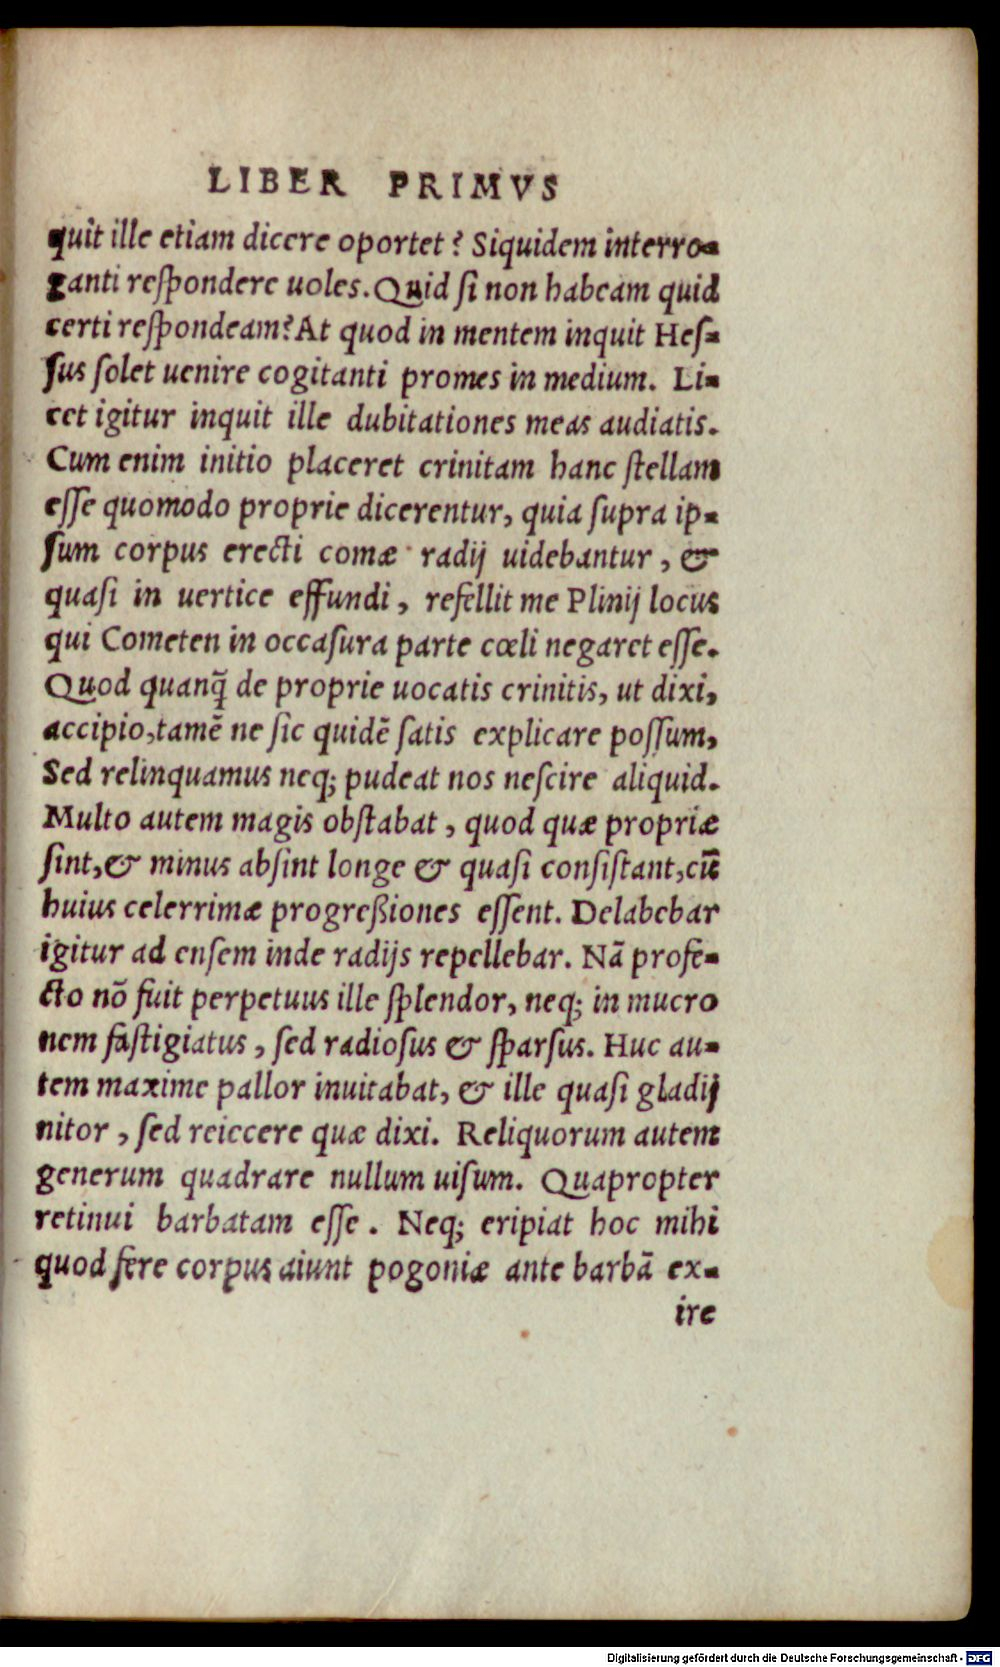 LIBER PRIMVS
quit ille etiam dicere oportet? Siquidem interro-
ganti reſpondere uoles. Quid ſi non habeam quid
certi reſpondeam? At quod in mentem inquit Heſ-
ſus ſolet uenire cogitanti promes in medium. Li-
cet igitur inquit ille dubitationes meas audiatis.
Cum enim initio placeret crinitam hanc ſtellam
eſſe quomodo proprie dicerentur, quia ſupra ip-
ſum corpus erecti comæ radij uidebantur, &
quaſi in uertice effundi, refellit me Plinij locus
qui Cometen in occaſura parte cœli negaret eſſe.
Quod quanq̃ de proprie uocatis crinitis, ut dixi,
accipio, tamẽ ne ſic quidẽ ſatis explicare poſſum,
Sed relinquamus neq; pudeat nos neſcire aliquid.
Multo autem magis obſtabat, quod quæ propriæ
ſint, & minus abſint longe & quaſi conſiſtant, cũ
huius celerrimæ progreßiones eſſent. Delabebar
igitur ad enſem inde radijs repellebar. Nã profe-
cto nõ fuit perpetuus ille ſplendor, neq; in mucro
nem faſtigiatus, ſed radioſus & ſparſus. Huc au-
tem maxime pallor inuitabat, & ille quaſi gladij
nitor, ſed reiecere quæ dixi. Reliquorum autem
generum quadrare nullum uiſum. Quapropter
retinui barbatam eſſe. Neq; eripiat hoc mihi
quod fere corpus aiunt pogoniæ ante barbã ex-
ire
Digitalisierung gefördert durch die Deutsche Forschungsgemeinschaft - DFG